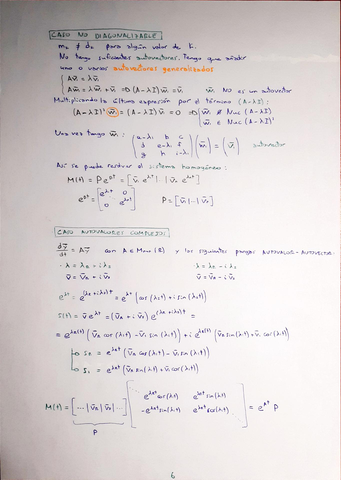 CASO NO DIAGONALIZABLE
mₖ ≠ dₖ para algún valor de k.
No tengo suficientes autovectores. Tengo que añadir
uno o varios autovectores generalizados
Av̄ = λv̄
Aw̄ = λw̄ + v̄ ⇒ (A-λI)w̄ = v̄ w̄ NO es un autovector
Multiplicando la última expresión por el término (A-λI):
(A-λI)² w̄ = (A-λI) v̄ = 0 ⇒ w̄ ∉ Nuc (A-λI)
w̄ ∈ Nuc (A-λI)²
Una vez tengo w̄: (a-λ b c
d e-λ f
g h i-λ) (w̄) = (v̄) autovector
Así se puede resolver el sistema homogéneo:
M(t) = P e^{Dt} = [v̄₁ e^{λ₁t} | v̄₂ e^{λ₂t}]
e^{Dt} = [e^{λ₁t} 0
0 e^{λ₂t}] P = [v̄₁ | v̄₂]
CASO AUTOVALORES COMPLEJOS
dȳ/dt = Aȳ con A ∈ (ℝ) y las siguientes parejas AUTOVALOR-AUTOVECTOR:
λ = λᵣ + iλᵢ λ = λᵣ - iλᵢ
v̄ = v̄ᵣ + iv̄ᵢ v̄ = v̄ᵣ - iv̄ᵢ
e^{λt} = e^{(λᵣ+iλᵢ)t} = e^{λᵣt} (cos(λᵢt) + i sin(λᵢt))
S(t) = v̄ e^{λt} = (v̄ᵣ + iv̄ᵢ) e^{(λᵣ+iλᵢ)t} =
= e^{λᵣt} (v̄ᵣ cos(λᵢt) - v̄ᵢ sin(λᵢt)) + i e^{λᵣt} (v̄ᵣ sin(λᵢt) + v̄ᵢ cos(λᵢt))
Sᵣ = e^{λᵣt} (v̄ᵣ cos(λᵢt) - v̄ᵢ sin(λᵢt))
Sᵢ = e^{λᵣt} (v̄ᵣ sin(λᵢt) + v̄ᵢ cos(λᵢt))
M(t) = [... | v̄ᵣ | v̄ᵢ | ...] [e^{λᵣt} cos(λᵢt) e^{λᵣt} sin(λᵢt)
-e^{λᵣt} sin(λᵢt) e^{λᵣt} cos(λᵢt)] = e^{At} P
P
6